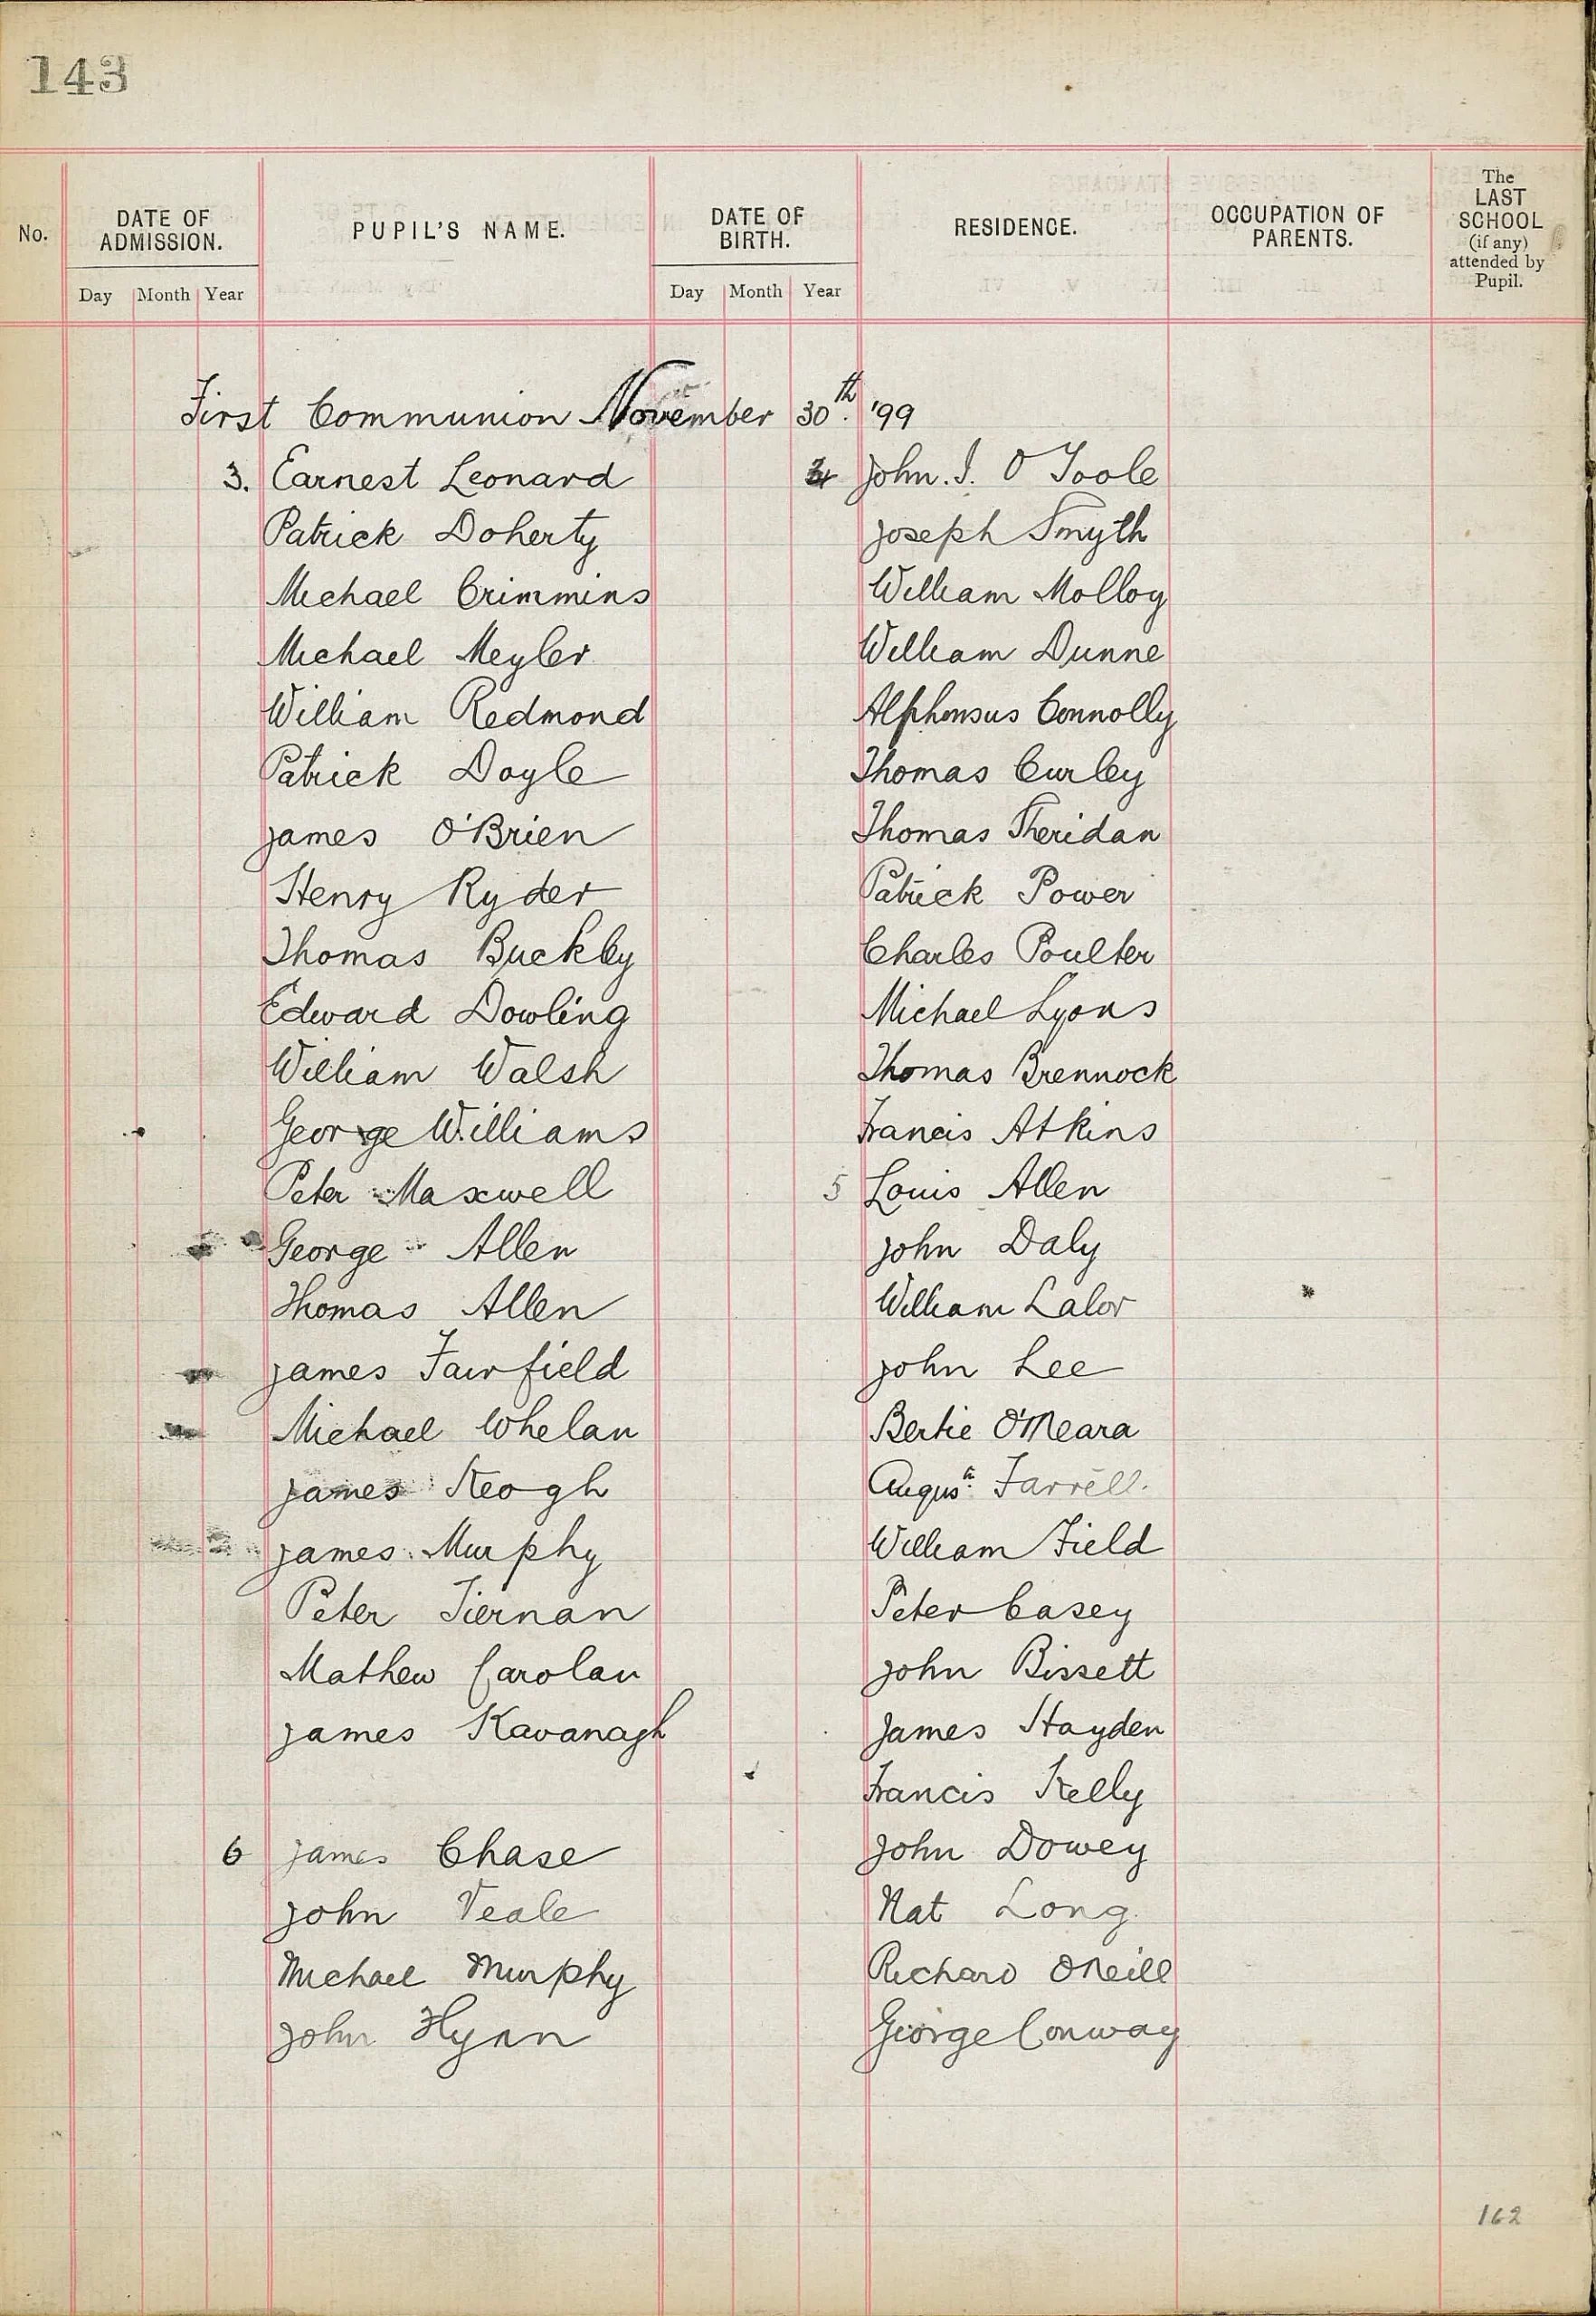 143
No.
DATE OF ADMISSION.
Day Month Year
PUPIL'S NAME.
DATE OF BIRTH.
Day Month Year
RESIDENCE.
OCCUPATION OF PARENTS.
The LAST SCHOOL (if any) attended by Pupil.
First Communion November 30th. '99
3. Earnest Leonard
Patrick Doherty
Michael Crimmins
Michael Meyler
William Redmond
Patrick Doyle
James O'Brien
Henry Ryder
Thomas Buckley
Edward Dowling
William Walsh
George Williams
Peter Maxwell
George Allen
Thomas Allen
James Fairfield
Michael Whelan
James Keogh
James Murphy
Peter Tiernan
Mathew Carolan
James Kavanagh
6 James Chase
John Veale
Michael Murphy
John Flynn
4 John. J. O Toole
Joseph Smyth
William Molloy
William Dunne
Alphonsus Connolly
Thomas Curley
Thomas Sheridan
Patrick Power
Charles Poulter
Michael Lyons
Thomas Brennock
Francis Atkins
5 Louis Allen
John Daly
William Lalor
John Lee
Bertie O'Meara
Augus. Farrell.
William Field
Peter Casey
John Bissett
James Hayden
Francis Kelly
John Dowey
Nat Long
Richard ONeill
George Conway
162